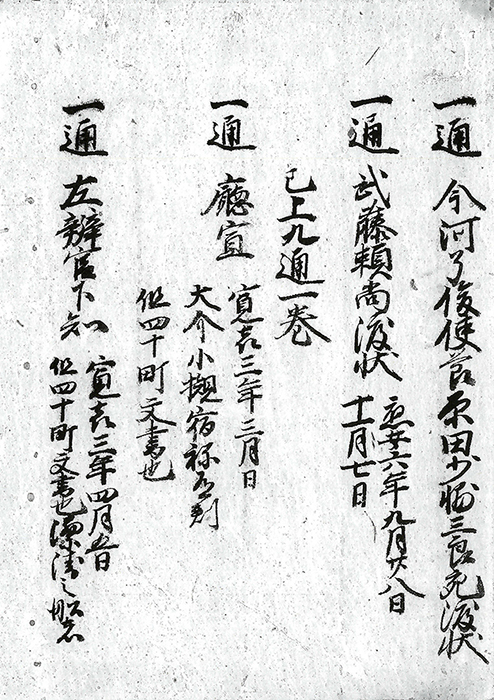 一通 今河了俊使節原田少輔三良充渡状
一通 武藤頼尚渡状 応安六年九月廿八日
十一月七日
已上九通一巻
一通 廳宣 寛喜三年三月日
大介小槻宿祢在判
但四十町文書也
一通 左辨官下知 寛喜三年四月五日
但四十町文書也